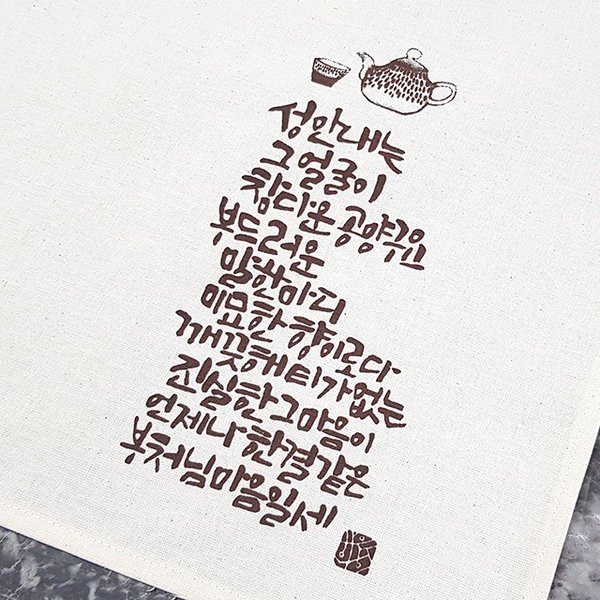 성안내는
그 얼굴이
참다운 공양구요
부드러운
말 한마디
미묘한 향이로다
깨끗해 티가없는
진실한 그 마음이
언제나 한결같은
부처님 마음일세